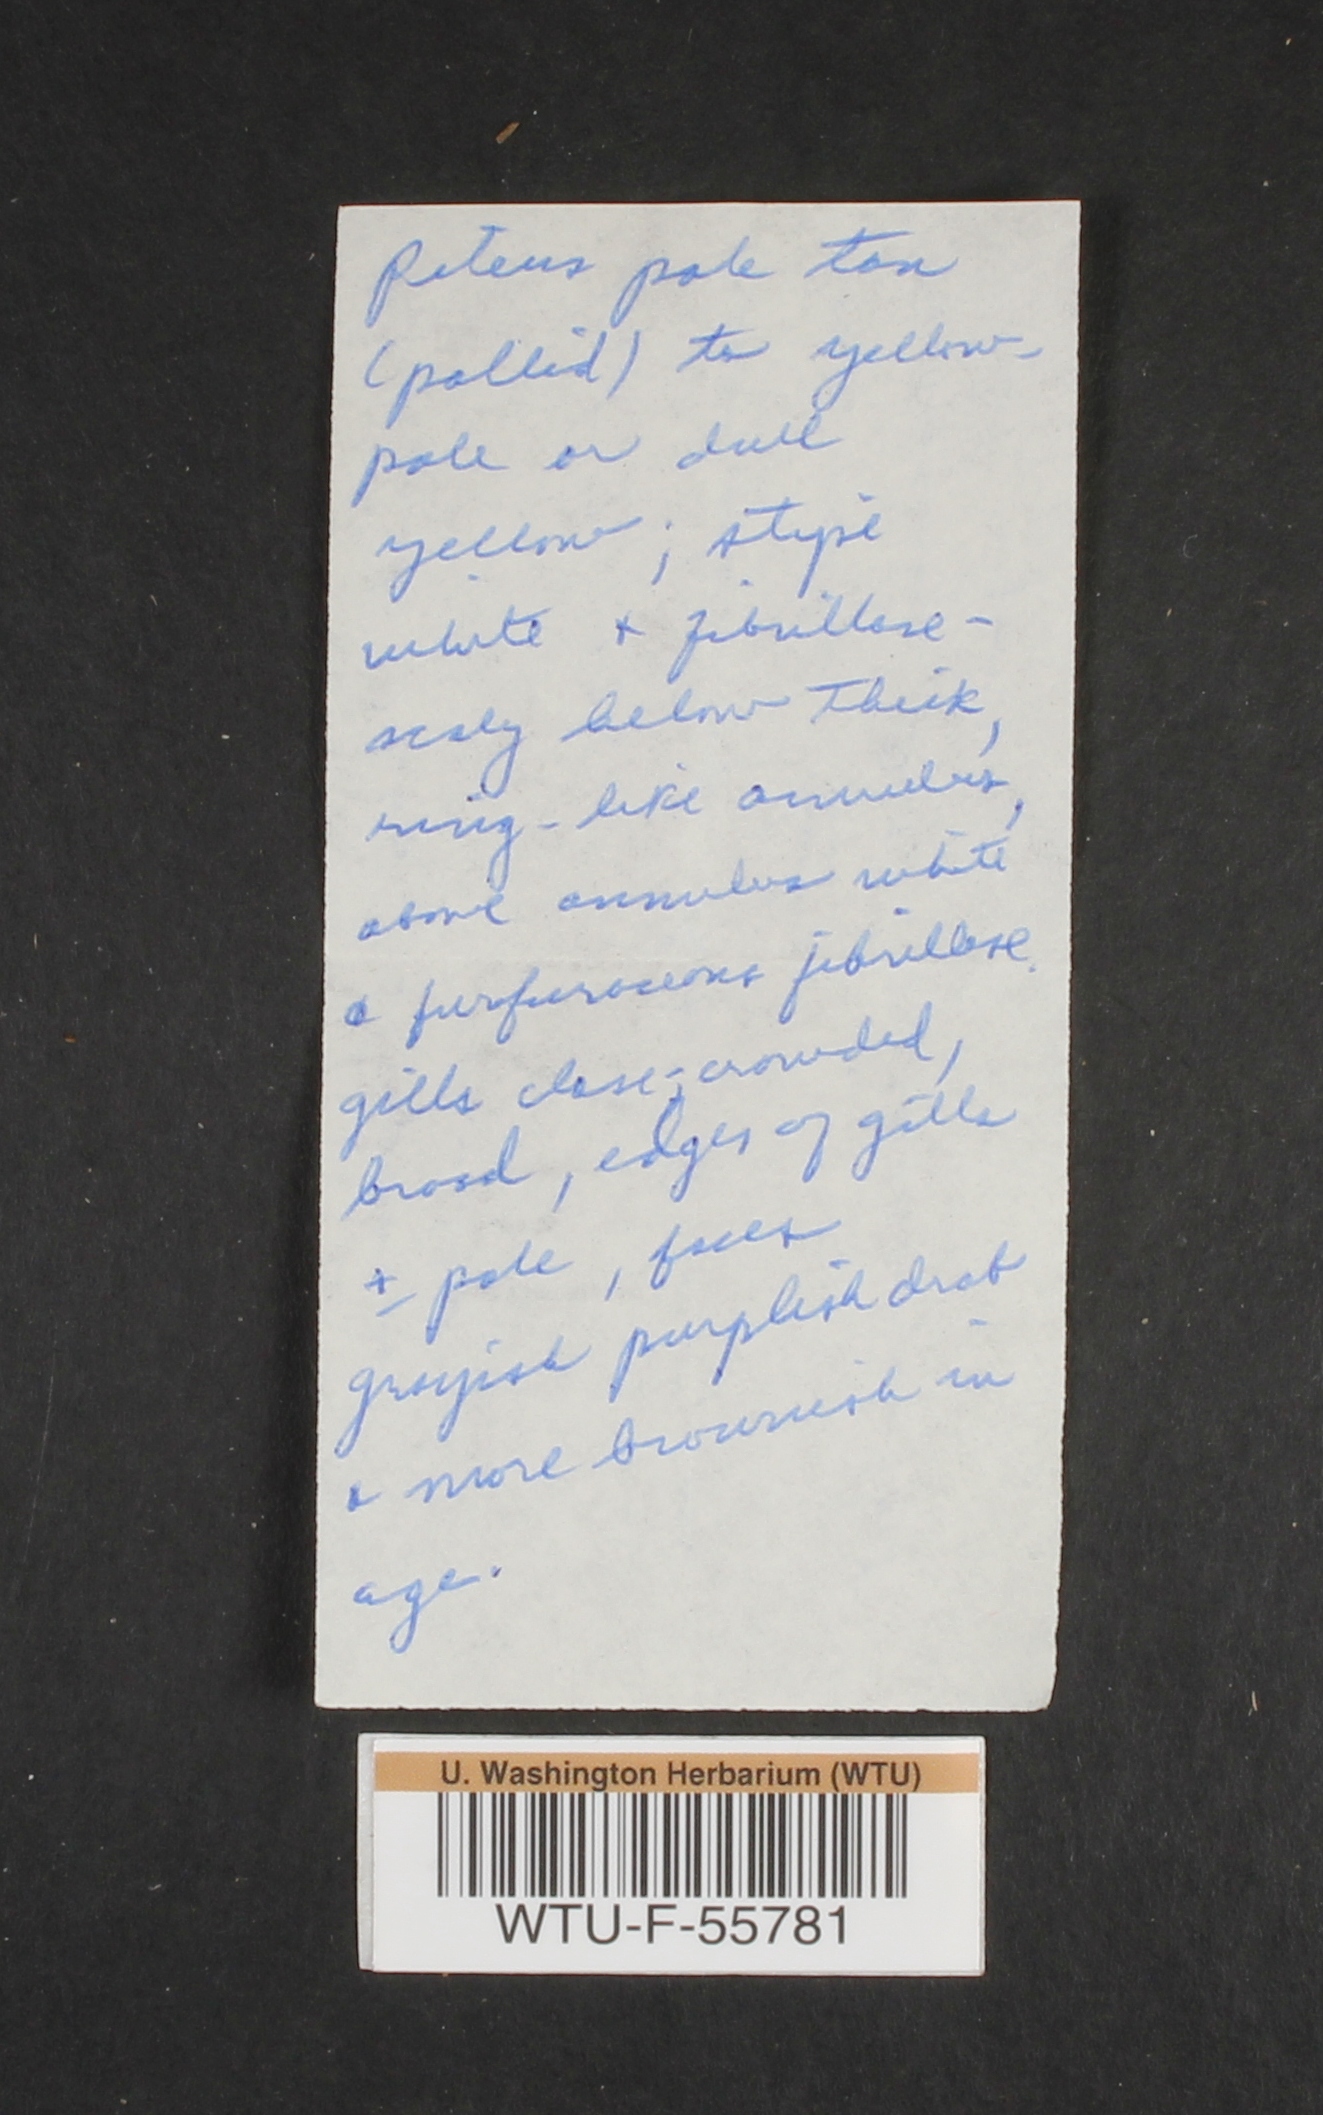 Pileus pale tan
(pallid) to yellow-
pale or dull
yellow; stipe
white & fibrillose-
scaly below thick,
ring-like annulus,
above annulus white
& furfuraceous fibrillose.
gills close-crowded,
broad, edges of gills
± pale, faces
grayish purplish drab
& more brownish in
age.
U. Washington Herbarium (WTU)
WTU-F-55781